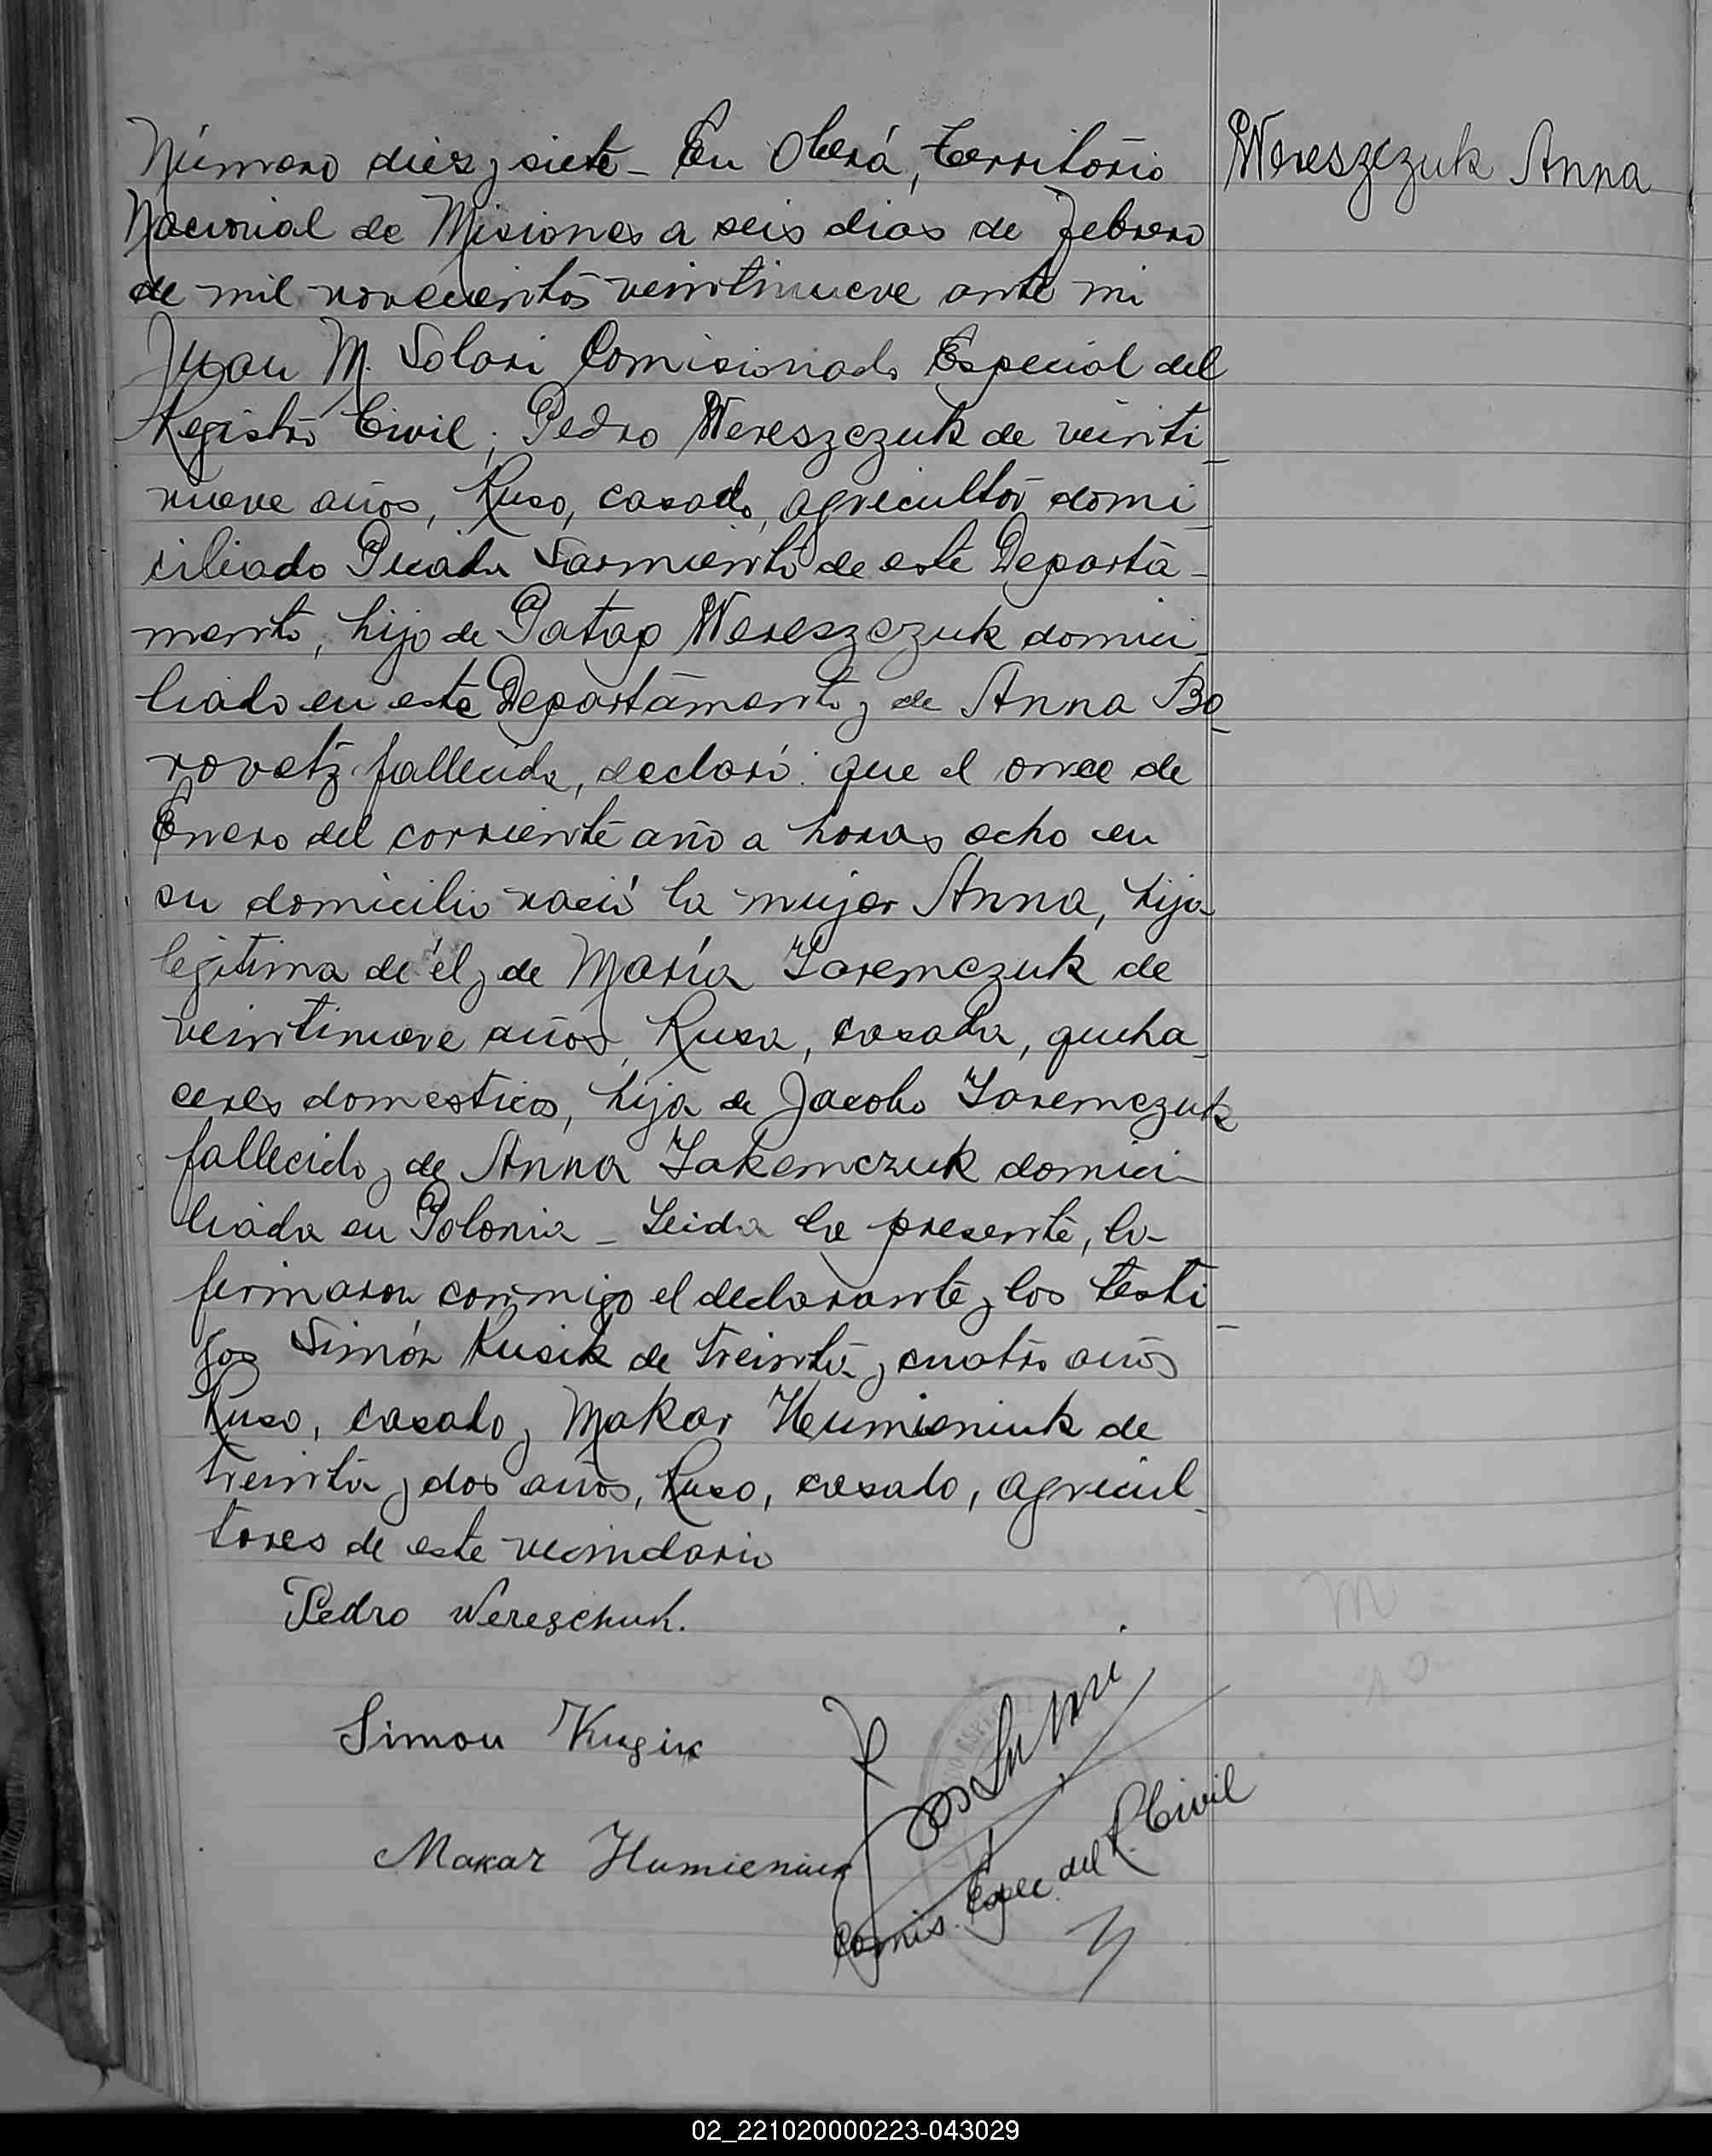 Número diez y siete - En Oberá, territorio
Nacional de Misiones a seis dias de Febrero
de mil novecientos veintinueve ante mi
Juan M. Solari Comisionado Especial del
Registro Civil; Pedro Wereszczuk de veinti
nueve años, Ruso, casado, agricultor domi
ciliado Picada Sarmiento de este Departa-
mento, hijo de Patap Wereszczuk domici
liado en este Departamento y de Anna Bo
rovetz fallecida, declaró: que el once de
Enero del corriente año a horas ocho en
su domicilio nació la mujer Anna, hija
legitima de él y de María Jaremczuk de
veintinueve años, Rusa, casada, queha
ceres domesticos, hija de Jacobo Jaremczuk
fallecido y de Anna Jakemczuk domici-
liada en Polonia - Leida la presente, la
firmaron conmigo el declarante y los testi
gos Simón Kusik de treinta y cuatro años
Ruso, casado y Makar Humieniuk de
treinta y dos años, Ruso, casado, agricul
tores de este vecindario
Pedro Wereschuk.
Simon Kusik
Makar Humieniuk
Comis. Espec. del R. Civil
Wereszczuk Anna
02_221020000223-043029